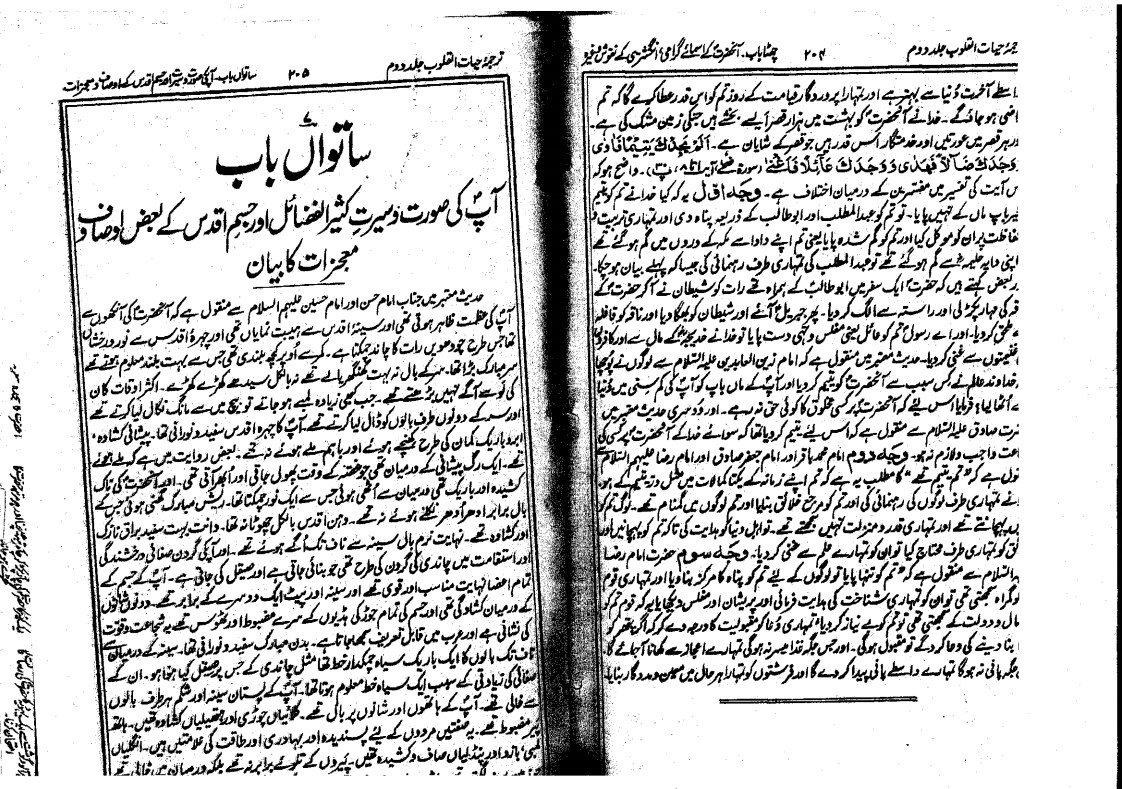 ترجمۂ حیات القلوب جلد دوم ۲۰۴ چھٹا باب۔ آنحضرتؐ کے اسمائے گرامی انگشتری کے نقوش وغیرہ
واسطے آخرت دُنیا سے بہتر ہے اور تمہارا پروردگار قیامت کے روز تم کو اس قدر عطا کرے گا کہ تم
راضی ہو جاؤ گے۔ خدا نے آنحضرتؐ کو بہشت میں ہزار قصر ایسے بخشے ہیں جنکی زمین مشک کی ہے۔
اور ہر قصر میں عورتیں اور خدمتگار اس قدر ہیں جو قصر کے شایان ہے۔ اَلَمْ یَجِدْكَ یَتِیْمًا فَاٰوٰی
وَوَجَدَكَ ضَآلًّا فَهَدٰی وَوَجَدَكَ عَآئِلًا فَاَغْنٰی (سورۂ ضحٰی آیت ۶ تا ۸، پ)۔ واضح ہو کہ
اس آیت کی تفسیر میں مفسرین کے درمیان اختلاف ہے۔ وجہ اوّل یہ کہ کیا خدا نے تم کو یتیم
بغیر باپ ماں کے نہیں پایا۔ تو تم کو عبدالمطلب اور ابوطالب کے ذریعہ پناہ دی اور تمہاری تربیت و
حفاظت پر ان کو موکل کیا اور تم کو گم شدہ پایا یعنی تم اپنے دادا سے مکہ کے دروں میں گم ہو گئے تھے
اپنی دایہ حلیمہ سے گم ہو گئے تھے تو عبدالمطلب کی تمہاری طرف رہنمائی کی جیسا کہ پہلے بیان ہو چکا۔
اور بعض کہتے ہیں کہ حضرتؐ ایک سفر میں ابوطالبؑ کے ہمراہ تھے رات کو شیطان نے آ کر حضرتؐ کے
ناقہ کی مہار پکڑ لی اور راستہ سے الگ کر دیا۔ پھر جبریلؑ آئے اور شیطان کو بھگا دیا اور ناقہ کو قافلہ
ملحق کر دیا۔ اور اے رسولؐ تم کو عائل یعنی مفلس و تہی دست پایا تو خدا نے خدیجہؑ کے مال سے اور کافروں
غنیمتوں سے غنی کر دیا۔ حدیث معتبر میں منقول ہے کہ امام زین العابدین علیہ السلام سے لوگوں نے پوچھا
خداوند عالم نے کس سبب سے آنحضرتؐ کو یتیم کر دیا اور آپؐ کے ماں باپ کو آپؐ کی کمسنی میں دُنیا
سے اُٹھا لیا؟ فرمایا اس لئے کہ آنحضرتؐ پر کسی مخلوق کا کوئی حق نہ رہے۔ اور دوسری حدیث معتبر میں
حضرت صادق علیہ السلام سے منقول ہے کہ اس لئے یتیم کر دیا تھا کہ سوائے خدا کے آنحضرتؐ پر کسی کی
اطاعت واجب و لازم نہ ہو۔ وجہ دوم امام محمد باقر اور امام جعفر صادق اور امام رضا علیہم السلام سے
منقول ہے کہ "تم یتیم تھے" کا مطلب یہ ہے کہ تم اپنے زمانہ کے یکتا کمالات میں مثل درّ یتیم کے ہو
نے تمہاری طرف لوگوں کی رہنمائی کی اور تم کو مرجع خلائق بنایا اور تم لوگوں میں گمنام تھے۔ لوگ تم کو
نہیں پہچانتے تھے اور تمہاری قدر و منزلت نہیں سمجھتے تھے۔ تو اہل دنیا کو ہدایت کی تاکہ تم کو پہچانیں اور
خلق کو تمہاری طرف محتاج کیا تو ان کو تمہارے علم سے غنی کر دیا۔ وجہ سوم حضرت امام رضا
علیہ السلام سے منقول ہے کہ "تم کو تنہا پایا تو لوگوں کے لئے تم کو پناہ کا مرکز بنا دیا اور تمہاری قوم
تم کو گمراہ سمجھتی تھی تو ان کو تمہاری شناخت کی ہدایت فرمائی اور پریشان اور مفلس دیکھا یا یہ کہ قوم تم کو
مال و دولت کے سمجھتی تھی تو تم کو بے نیاز کر دیا، تمہاری دُعا کو مقبولیت کا درجہ دے کر کہ اگر پتھر کو
بنا دینے کی دعا کر دگے تو مقبول ہو گی۔ اور جس جگہ غذا میسر نہ ہو گی تمہارے اعجاز سے کھانا آ جائے گا۔
جس جگہ پانی نہ ہو گا تمہارے واسطے پانی پیدا کر دے گا اور فرشتوں کو تمہارا ہر حال میں معین و مددگار بنایا۔
ترجمۂ حیات القلوب جلد دوم ۲۰۵ ساتواں باب۔ آپؐ کی صورت و سیرت اور جسم اقدس کے اوصاف و معجزات
۷
ساتواں باب
آپؐ کی صورت و سیرتِ کثیر الفضائل اور جسمِ اقدس کے بعض اوصاف
معجزات کا بیان
حدیث معتبر میں جناب امام حسن اور امام حسین علیہم السلام سے منقول ہے کہ آنحضرتؐ کی آنکھوں سے
آپؐ کی عظمت ظاہر ہوتی تھی اور سینۂ اقدس سے ہیبت نمایاں تھی اور چہرۂ اقدس سے نور درخشاں
تھا جس طرح چودھویں رات کا چاند چمکتا ہے۔
سر مبارک بڑا تھا۔ سر کے بال نہ بہت گھنگھریالے تھے نہ بالکل سیدھے کھڑے کھڑے۔ اکثر اوقات کان
کی لو سے آگے نہیں بڑھتے تھے۔ جب کبھی زیادہ لمبے ہو جاتے تو بیچ میں سے مانگ نکال لیا کرتے تھے
اور سر کے دونوں طرف بالوں کو ڈال لیا کرتے تھے۔ آپؐ کا چہرہ اقدس سفید و نورانی تھا۔ پیشانی کشادہ
ابرو باریک کمان کی طرح کھنچے ہوئے اور باہم ملے ہوئے نہ تھے۔ بعض روایت میں ہے کہ ملے ہوئے
تھے۔ ایک رگ پیشانی کے درمیان تھی جو غصّہ کے وقت پھول جاتی اور ابھر آتی تھی۔ اور آنحضرتؐ کی ناک
کشیدہ اور باریک تھی درمیان سے اُٹھی ہوئی جس سے ایک نور چمکتا تھا۔ ریش مبارک گھنی تھی جس کے
بال برابر ادھر ادھر نکلے ہوئے نہ تھے۔ دہن اقدس بالکل چھوٹا نہ تھا۔ دانت بہت سفید براق نازک
اور کشادہ تھے۔ نہایت نرم بال سینہ سے ناف تک اُگے ہوئے تھے۔ اور آپکی گردن صفائی درخشندگی
اور استقامت میں چاندی کی گردن کی طرح تھی جو بنائی جاتی ہے اور صیقل کی جاتی ہے۔ آپؐ کے جسم کے
تمام اعضا نہایت مناسب اور قوی تھے اور سینہ اور پیٹ ایک دوسرے کے برابر تھے۔ دونوں شانوں
کے درمیان کشادگی تھی اور جسم کی تمام جوڑ کی ہڈیوں کے سرے مضبوط اور ٹھوس تھے یہ شجاعت و قوت
کی نشانی ہے اور عرب میں قابل تعریف سمجھا جاتا ہے۔ بدن مبارک سفید و نورانی تھا۔ سینہ کے درمیان
ناف تک بالوں کا ایک باریک سیاہ چمکدار خط تھا مثل چاندی کے جس پر صیقل کی گئی ہو۔ ان کے
صفائی کی زیادتی کے سبب ایک سیاہ خط معلوم ہوتا تھا۔ آپؐ کے پستان سینہ اور شکم ہر طرف بالوں
سے خالی تھے۔ آپؐ کے ہاتھوں اور شانوں پر بال تھے۔ کلائیاں چوڑی اور ہتھیلیاں کشادہ تھیں۔ ہاتھ
پیر مضبوط تھے۔ یہ صفتیں مردوں کے لئے پسندیدہ اور بہادری اور طاقت کی علامتیں ہیں۔ انگلیاں
لمبی بازو اور پنڈلیاں صاف و کشیدہ تھیں۔ پیروں کے تلوے برابر نہ تھے بلکہ درمیان میں خالی تھے